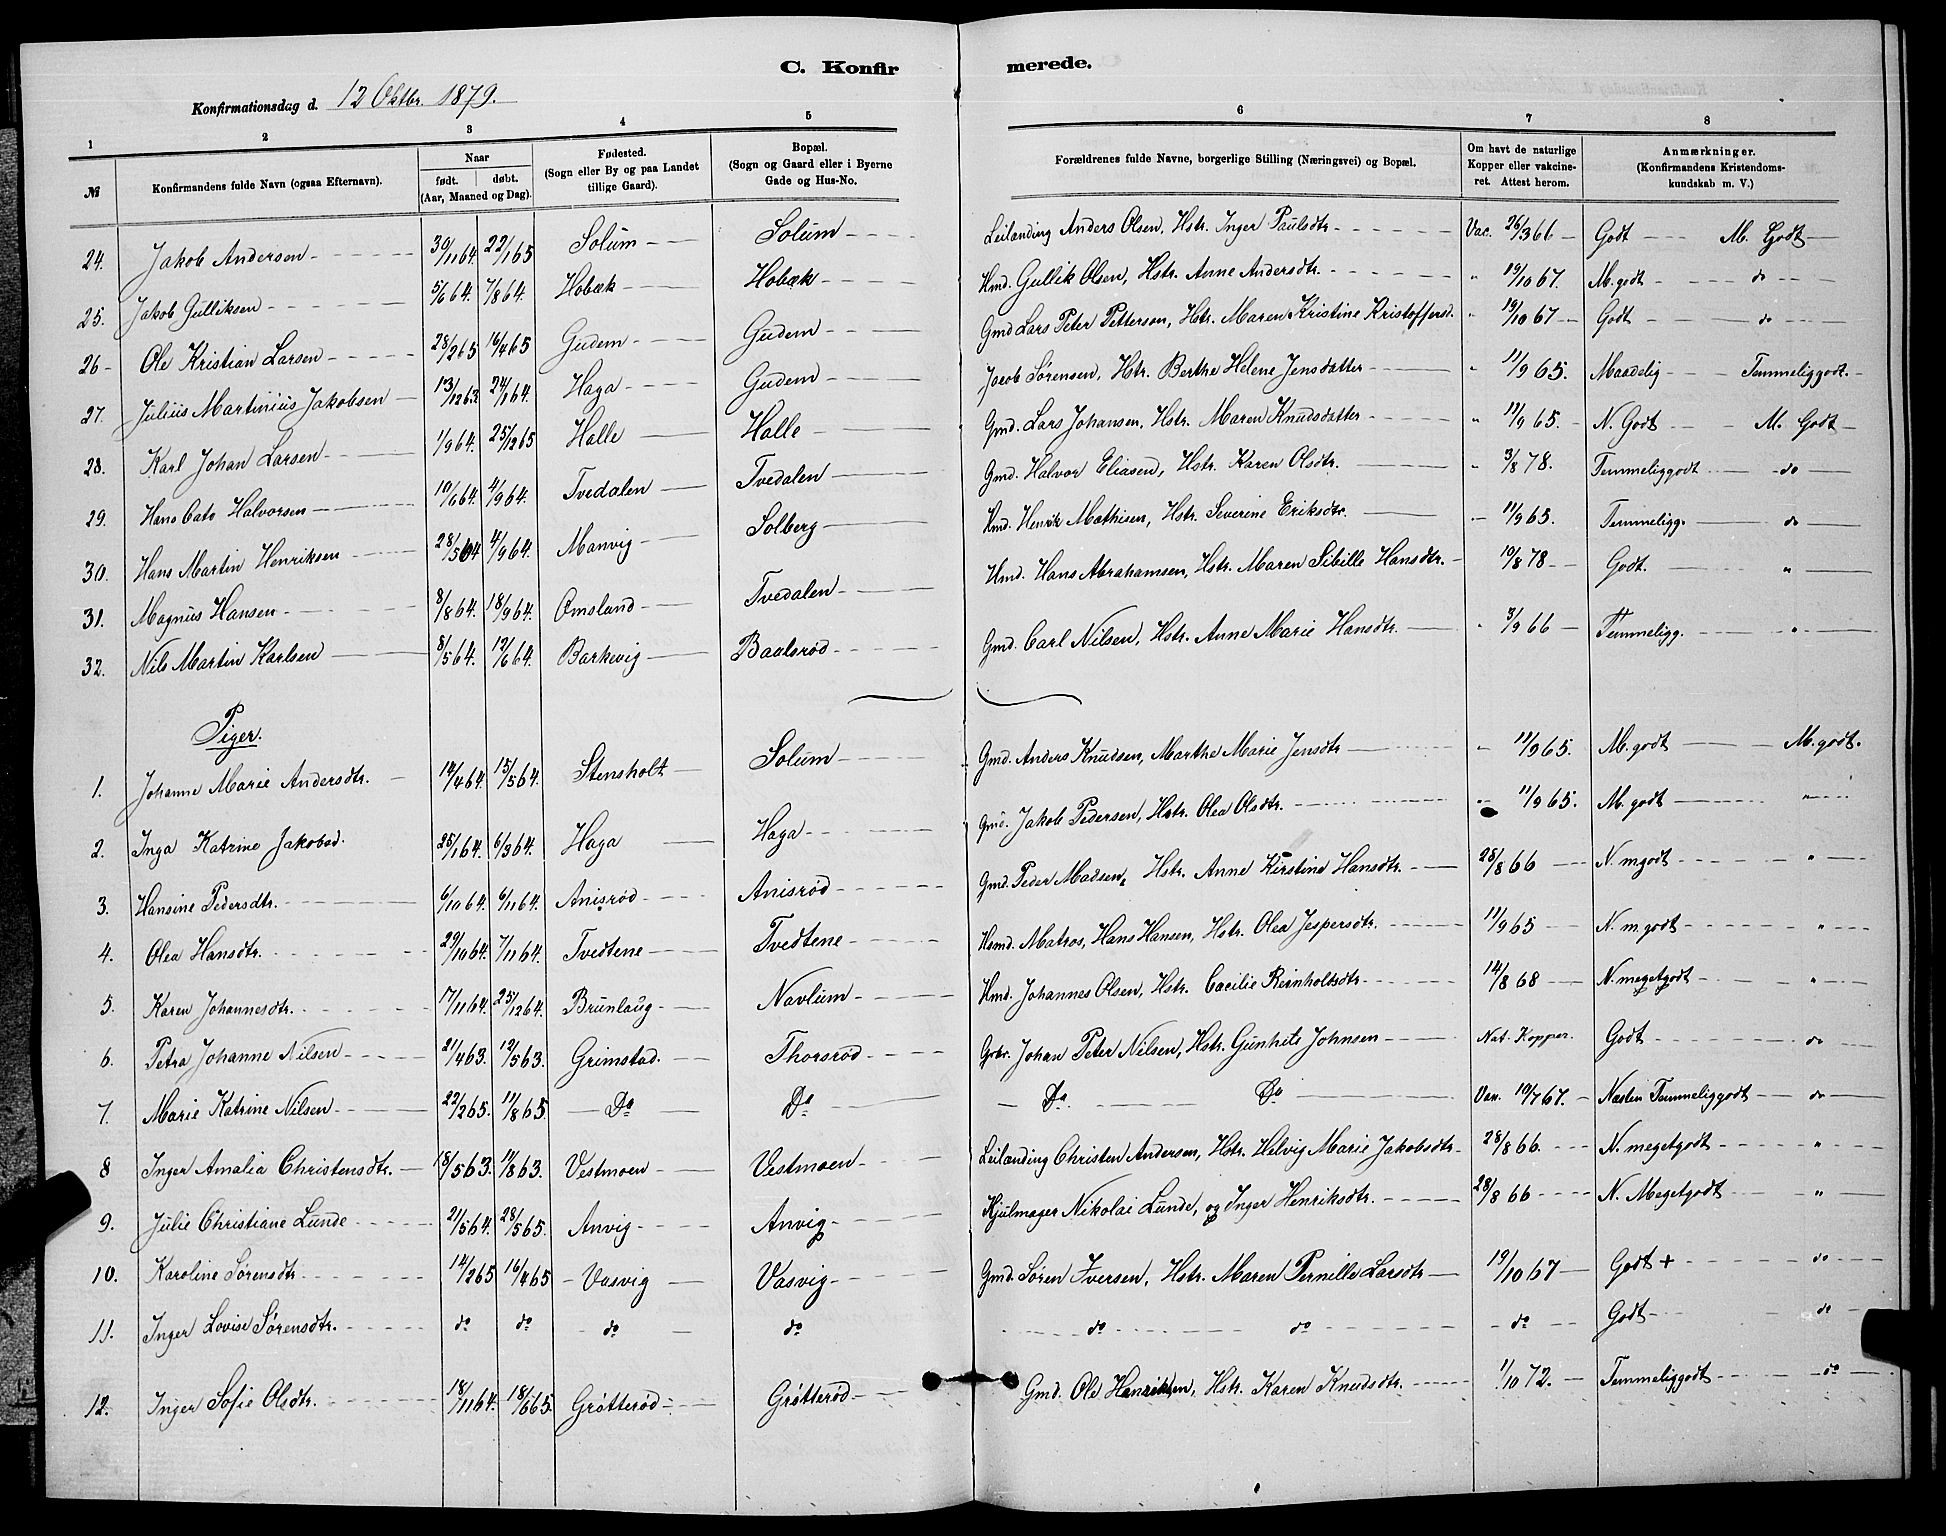 C. Konfirmerede.
Konfirmationsdag d. 12 Oktbr. 1879.
1 2 3 4 5 6 7 8
№ Konfirmandens fulde Navn (ogsaa Efternavn). Naar født. døbt. (Aar, Maaned og Dag). Fødested. (Sogn eller By og paa Landet tillige Gaard). Bopæl. (Sogn og Gaard eller i Byerne Gade og Hus-No. Forældrenes fulde Navne, borgerlige Stilling (Næringsvei) og Bopæl. Om havt de naturlige Kopper eller vakcineret. Attest herom. Anmærkninger. (Konfirmandens Kristendomskundskab m. V.)
24. Jakob Andersen 30/11 64. 22/1 65 Solum Solum Leilanding Anders Olsen, Hstr. Inger Paulsdtr Vac. 26/3 66 Godt M. Godt
25. Jakob Gulliksen 5/6 64. 7/8 64. Hobæk Hobæk Hmd. Gullik Olsen, Hstr. Anne Andersdtr. " 19/10 67. M. godt do
26 Ole Kristian Larsen 28/2 65 16/4 65 Gudem Gudem Gmd Lars Peter Petterson, Hstr. Maren Kristine Kristoffersd. " 19/10 67 Godt do
27. Julius Martinius Jakobsen 13/12 63. 24/1 64. Haga Gudem Jacob Sørensen, Hstr. Berthe Helene Jensdatter " 11/9 65. Maadelig Temmeliggodt.
28. Karl Johan Larsen 1/9 64. 25/12 65 Halle Halle Gmd. Lars Johansen, Hstr. Maren Knudsdatter " 11/9 65. N. Godt M. Godt
29. Hans Cato Halvorsen 10/6 64. 4/9 64. Tvedalen Tvedalen Gmd. Halvor Eliasen, Hstr. Karen Olsdtr. " 3/8 78. Temmeliggodt do
30. Hans Martin Henriksen 28/5 64 4/9 64. Manvig Solberg Hmd. Henrik Mathisen, Hstr. Severine Eriksdtr. " 11/9 65. Temmeligg. do
31. Magnus Hansen 8/8 64. 18/9 64. Omsland Tvedalen Hmd. Hans Abrahamsen, Hstr. Maren Sibille Hansdtr. 10/8 78 Godt. "
32. Nils Martin Karlsen 8/5 64. 12/6 64. Barkevig Baalsrød Gmd. Carl Nilsen, Hstr. Anne Marie Hansdtr. " 3/9 66 Temmeligg. "
Piger.
1. Johanne Marie Andersdtr. 14/4 64. 15/5 64. Stensholt Solum Gmd. Anders Knudsen, Marthe Marie Jensdtr " 11/9 65. M. godt M. godt.
2. Inga Katrine Jakobsd. 25/1 64. 6/3 64. Haga Haga Gmd. Jakob Pedersen, Hstr. Olea Olsdtr. " 11/9 65. M. godt "
3. Hansine Pedersdtr. 6/10 64. 6/11 64. Anisrød Anisrød Gmd. Peder Madsen, Hstr. Anne Kirstine Hansdtr. 28/8 66 N. mgodt "
4. Olea Hansdtr. 29/10 64. 7/11 64. Tvedtene Tvedtene Hsmd. Matros, Hans Hansen, Hstr. Olea Jespersdtr. 11/9 65 N. m godt "
5. Karen Johannesdtr. 17/11 64. 25/12 64. Brunlaug Navlum Hmd. Johannes Olsen, Hstr. Cacilie Reinholtsdtr 14/8 68 N. megetgodt "
6. Petra Johanne Nilsen 21/4 63. 12/5 63. Grimstad. Thorsrød Grbr. Johan Peter Nilsen, Hstr. Gunhite Johnsen Nat. Kopper. Godt do
7. Marie Katrine Nilsen 22/2 65. 11/8 65 Do Do Do. Do Vax. 19/7 67. Næsten Temmeliggodt do
8 Inger Amalia Christensdtr. 18/5 63. 11/8 63. Vestmoen Vestmoen Leilanding Christen Andersen, Hstr. Helvig Marie Jakobsdtr 28/8 66. N. megetgodt "
9. Julie Christiane Lunde 21/5 64. 28/5 65. Anvig Anvig Hjulmager Nikolai Lunde, og Inger Henriksdtr. 28/8 66 N. Megetgodt "
10. Karoline Sørensdtr 14/2 65 16/4 65 Vasvig Vasvig Gmd. Søren Iversen, Hstr. Maren Pernille Larsdtr 19/10 67 Godt + do
11. Inger Lovise Sørensdtr. do do do do do do do Godt do
12. Inger Sofie Olsdtr. 18/11 64. 18/6 65. Grøtterød Grøtterød Gmd. Ole Henriksen, Hstr. Karen Knudsdtr. 1/10 72. Temmeliggodt do